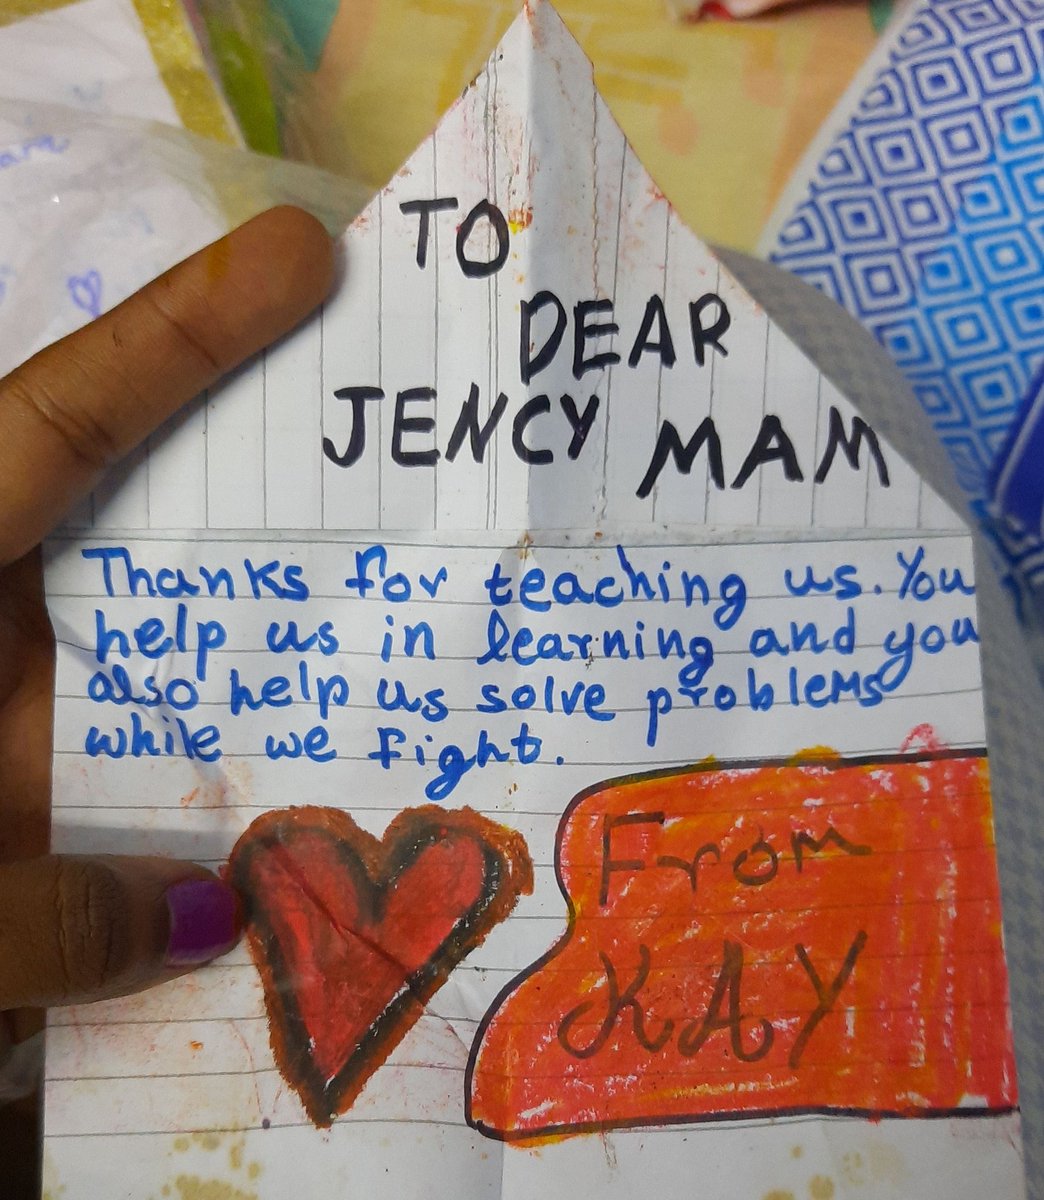 TO
DEAR
JENCY MAM
Thanks for teaching us. You
help us in learning and you
also help us solve problems
while we fight.
From
KAY